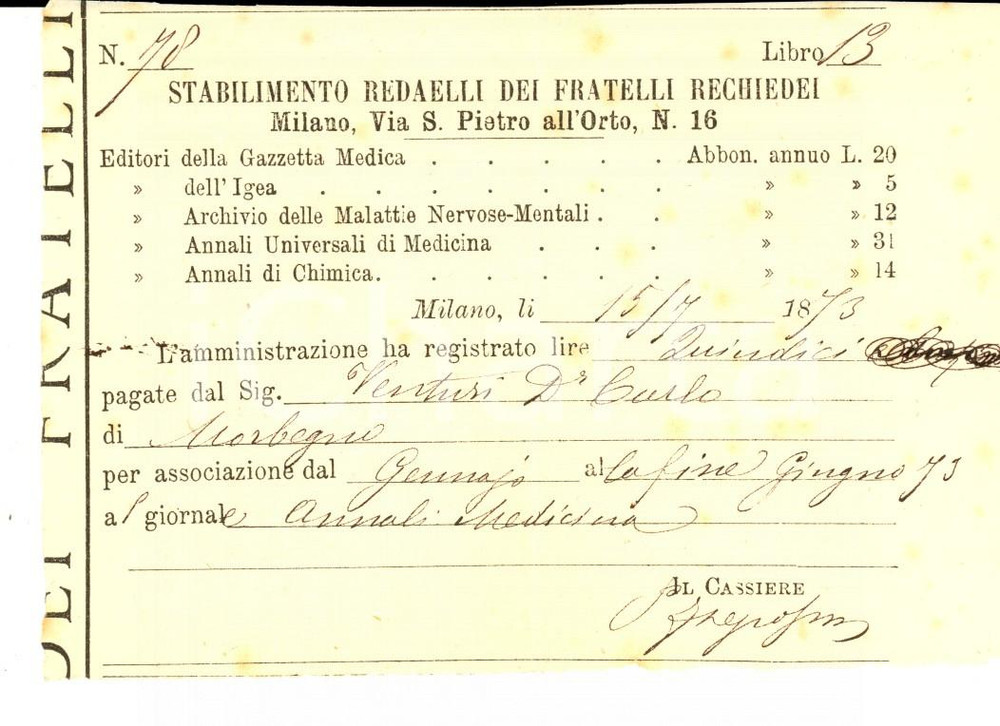 N. 78 Libro 13
STABILIMENTO REDAELLI DEI FRATELLI RECHIEDEI
Milano, Via S. Pietro all'Orto, N. 16
Editori della Gazzetta Medica . . . . . Abbon. annuo L. 20
» dell' Igea . . . . . . . » » 5
» Archivio delle Malattie Nervose-Mentali . . » » 12
» Annali Universali di Medicina . . . » » 31
» Annali di Chimica . . . . . . » » 14
Milano, li 15/7 1873
L'amministrazione ha registrato lire Quindici
pagate dal Sig. Venturi Dr Carlo
di Morbegno
per associazione dal Gennajo alla fine Giugno 73
al giornale Annali Medicina
IL CASSIERE
DEI FRATELLI